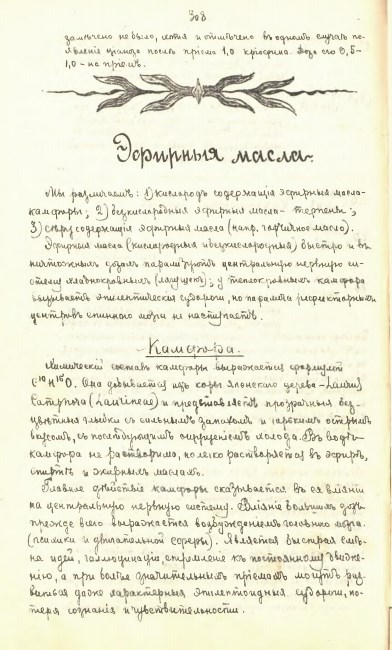 308
замѣчено не было, хотя и отмѣчено въ одномъ случаѣ по-
явленіе цианоза послѣ пріема 1,0 кріофина. Доза его 0,5-
1,0 - на пріемъ.
Эфирныя масла.
Мы различаемъ: 1) кислородъ содержащія эфирныя масла-
камфоры; 2) безкислородныя эфирныя масла - терпены;
3) сѣру содержащія эфирныя масла (напр. горчичное масло).
Эфирныя масла (кислородныя и безкислородныя) быстро и въ
ничтожныхъ дозахъ парализуютъ центральную нервную си-
стему хладнокровныхъ (лягушекъ); у теплокровныхъ камфора
вызываетъ эпилептическія судороги, но паралича рефлекторныхъ
центровъ спинного мозга не наступаетъ.
Камфора.
Химическій составъ камфоры выражается формулой
C¹⁰H¹⁶O. Она добывается изъ коры японскаго дерева - Laurus
Camphora (Laurineae) и представляетъ прозрачныя без-
цвѣтныя глыбки съ сильнымъ запахомъ и горькимъ острымъ
вкусомъ, съ послѣдующимъ ощущеніемъ холода. Въ водѣ
камфора не растворима, но легко растворяется въ эфирѣ,
спиртѣ и жирныхъ маслахъ.
Главное дѣйствіе камфоры сказывается въ ея вліяніи
на центральную нервную систему. Вліяніе большихъ дозъ
прежде всего выражается возбужденіемъ головного мозга
(психики и двигательной сферы). Является быстрая смѣ-
на идей, галлюцинаціи, стремленіе къ постоянному движе-
нію, а при болѣе значительныхъ пріемахъ могутъ раз-
виться даже характерныя эпилептоидныя судороги, по-
теря сознанія и чувствительности.